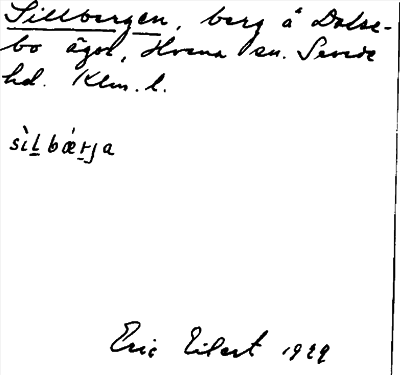 Sillbergen, berg å Dalse-
bo ägor, Hvena sn. Sevede
hd. Klm. l.
sìḻbǽṟja
Eric Eilert 1929